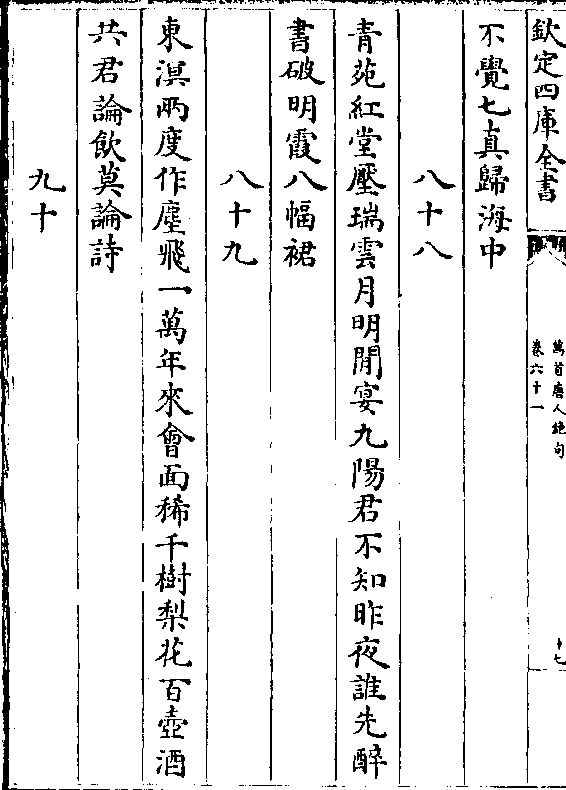 欽定四庫全書
萬首唐人絶句
卷六十一
十七
不覺七真歸海中
八十八
青苑紅堂壓瑞雲月明閒宴九陽君不知昨夜誰先醉
書破明霞八幅裙
八十九
東溟兩度作塵飛一萬年來會面稀千樹梨花百壺酒
共君論飲莫論詩
九十